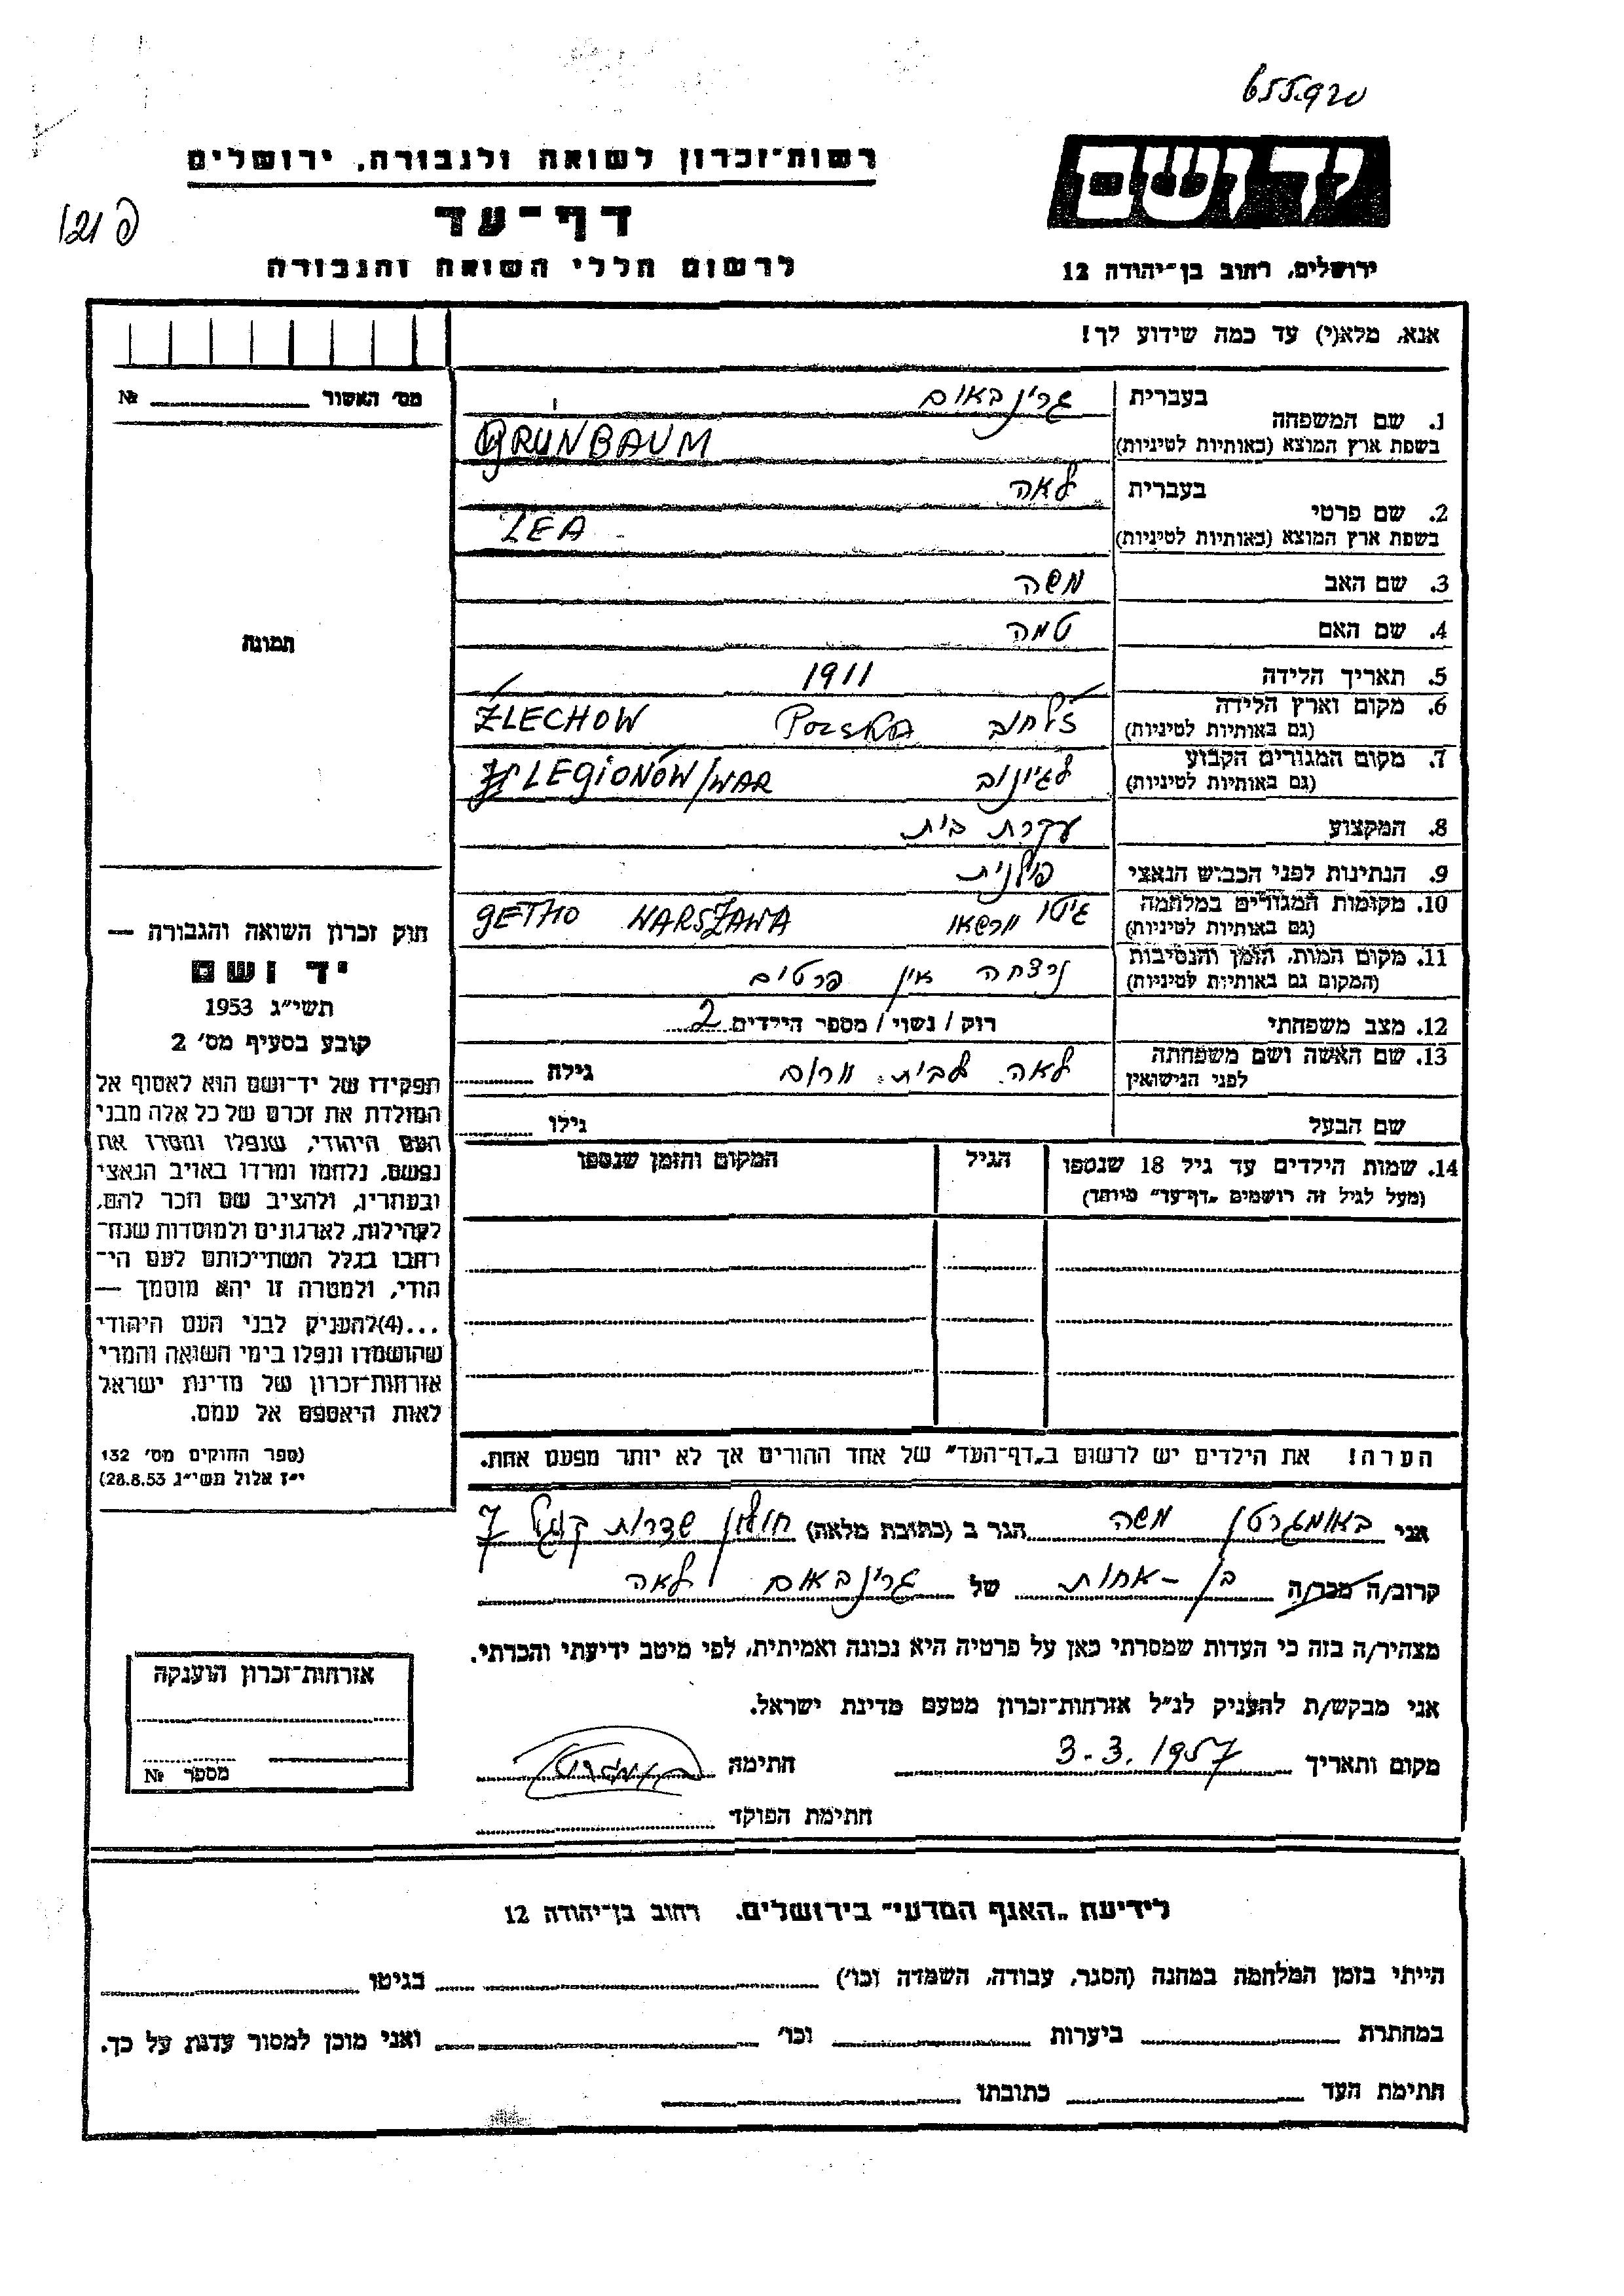 655920
רשות־זכרון לשואה ולגבורה, ירושלים
יד ושם
דף־עד
לרשום חללי השואה והגבורה
ירושלים, רחוב בן־יהודה 12
אנא, מלא(י) עד כמה שידוע לך!
מס' האשור №
1. שם המשפחה
בעברית גרינבאום
בשפת ארץ המוצא (באותיות לטיניות) GRUNBAUM
2. שם פרטי
בעברית לאה
בשפת ארץ המוצא (באותיות לטיניות) LEA
3. שם האב משה
4. שם האם טמה
5. תאריך הלידה 1911
6. מקום וארץ הלידה זלחוב POLSKA ŻLECHOW
(גם באותיות לטיניות)
7. מקום המגורים הקבוע לגיונוב LEGIONÓW/WAR
(גם באותיות לטיניות)
8. המקצוע עקרת בית
9. הנתינות לפני הכבוש הנאצי פולנית
10. מקומות המגורים במלחמה גיטו וורשאו GETTO WARSZAWA
(גם באותיות לטיניות)
11. מקום המות, הזמן והנסיבות נרצחה אין פרטים
(המקום גם באותיות לטיניות)
12. מצב משפחתי רוק / נשוי / מספר הילדים 2
13. שם האשה ושם משפחתה לאה לבית גילה
לפני הנישואין
שם הבעל גילו
14. שמות הילדים עד גיל 18 שנספו הגיל המקום והזמן שנספו
(מעל לגיל זה רושמים „דף־עד" מיוחד)
הערה! את הילדים יש לרשום ב„דף־העד" של אחד ההורים אך לא יותר מפעם אחת.
תמונה
חוק זכרון השואה והגבורה —
יד ושם
תשי"ג 1953
קובע בסעיף מס' 2
תפקידו של יד־ושם הוא לאסוף אל
המולדת את זכרם של כל אלה מבני
העם היהודי, שנפלו ומסרו את
נפשם, נלחמו ומרדו באויב הנאצי
ובעוזריו, ולהציב שם וזכר להם,
לקהילות, לארגונים ולמוסדות שנח־
רבו בגלל השתייכותם לעם הי־
הודי, ולמטרה זו יהא מוסמך —
...(4)להעניק לבני העם היהודי
שהושמדו ונפלו בימי השואה והמרי
אזרחות־זכרון של מדינת ישראל
לאות היאספם אל עמם.
(ספר החוקים מס' 132
י"ז אלול תשי"ג 28.8.53)
אני באומגרטן משה הגר ב (כתובת מלאה) חולון שדרות קוגל 7
קרוב/ה מכר/ה בן-אחות של גרינבאום לאה
מצהיר/ה בזה כי העדות שמסרתי כאן על פרטיה היא נכונה ואמיתית, לפי מיטב ידיעתי והכרתי.
אני מבקש/ת להעניק לנ"ל אזרחות־זכרון מטעם מדינת ישראל.
מקום ותאריך 3.3.1957 חתימה באומגרטן
חתימת הפוקד
אזרחות־זכרון הוענקה
מספר №
לידיעת „האגף המדעי" בירושלים. רחוב בן־יהודה 12
הייתי בזמן המלחמה במחנה (הסגר, עבודה, השמדה וכו') בגיטו
במחתרת ביערות וכו' ואני מוכן למסור עדות על כך.
חתימת העד כתובתו